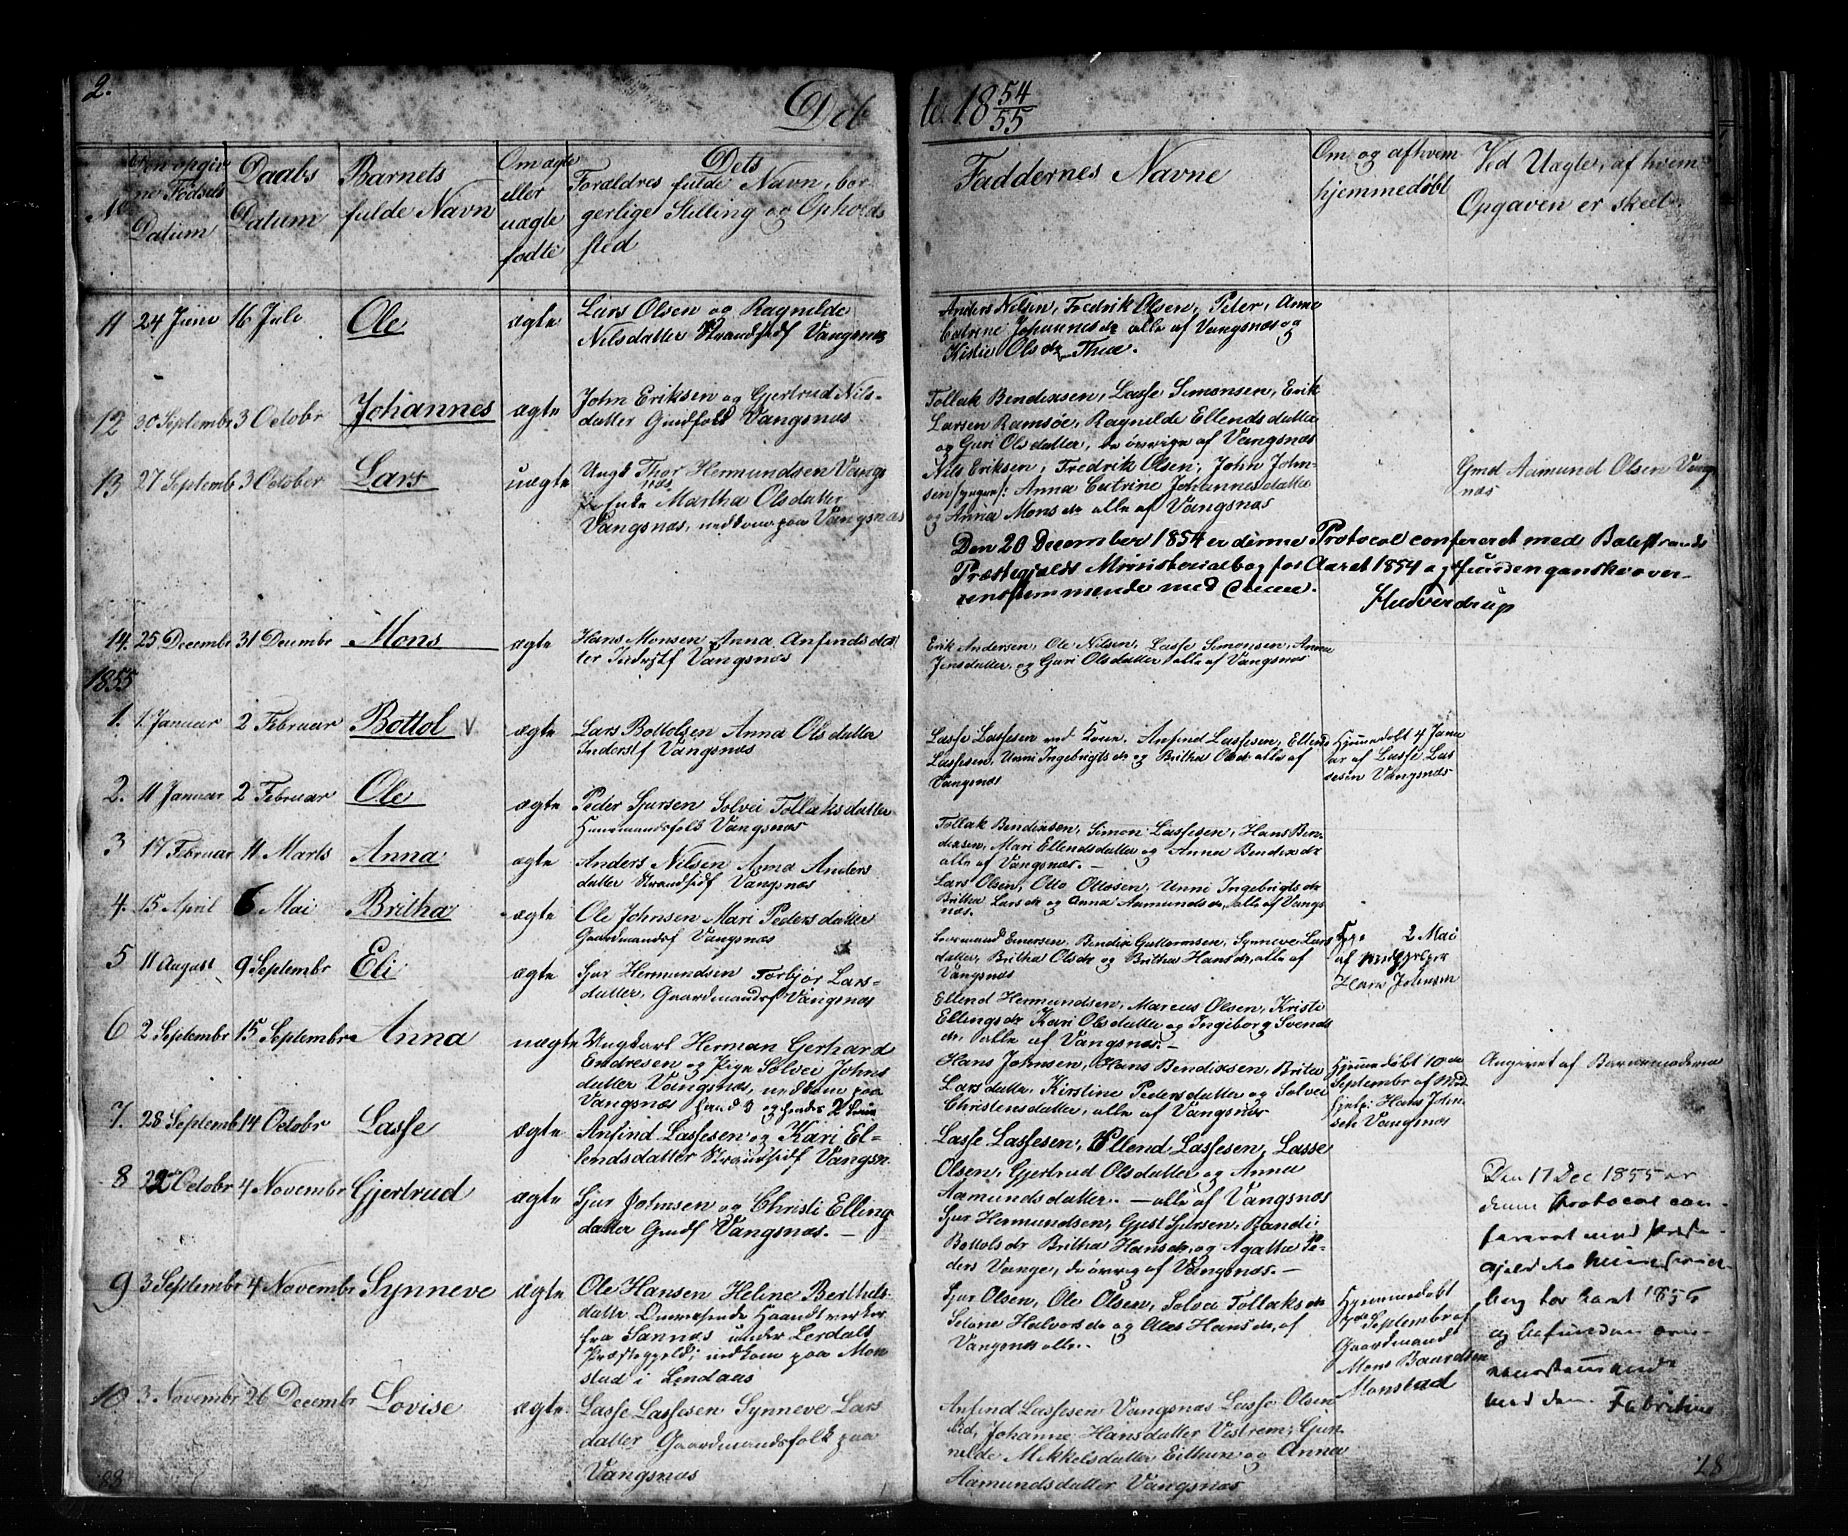 2.
Døbte 18 54/55
No
Den opgivne Fødsels Datum
Daabs Datum
Barnets fulde Navn
Om ægte eller uægte fødte
Dets Forældres fulde Navn, borgerlige Stilling og Opholdssted
Faddernes Navne
Om og af hvem hjemmedøbt
Ved Uægte, af hvem Opgaven er skeet
11 24 Juni 16 Juli Ole ægte
Lars Olsen og Ragnilde
Nilsdatter Strandsidf Vangsnæs
Anders Nilsen, Fredrik Olsen, Peter, Anna
Catrine Johannesdr alle af Vangsnæs og
Kistie Olsdr Thue.
12 30 Septembr 3 Octobr Johannes ægte
John Eriksen og Gjertrud Nils-
datter Gmdfolk Vangsnæs
Tollak Bendixsen, Lasse Simonsen, Erik
Larsen Ramsøe, Ragnilde Ellendsdatter
og Guri Olsdatter, de øvrige af Vangsnæs
13 27 Septemb 3 October Lars uægte
Ungk Thor Hermundsen Vangs
næs
Enke Martha Olsdatter
Vangsnæs, nedkom paa Vangsnæs
Nils Eriksen, Fredrik Olsen, John John-
sen /yngere/: Anna Catrine Johannesdatter
og Anna Monsdr alle af Vangsnæs
Gmd Aamund Olsen Vangs
næs
Den 20 December 1854 er denne Protocol confereret med Balestrands
Præstegjelds Ministerialbog for Aaret 1854 og funden ganske over-
rensstemmende med denne.
14. 25 Decembr 31 Decembr Mons ægte
Hans Monsen Anna Anfindsdat
ter Inderstf Vangsnæs
Erik Andersen, Ole Nilsen, Lasse Simonsen, Anna
Jensdatter, og Guri Olsdatter, alle af Vangsnæs
1855
1. 1. Januar 2 Februar Bottol V ægte
Lars Bottolsen Anna Olsdatter
Inderstf Vangsnæs
Lasse Lassesen ved Kone, Anfind Lassesen, Ellend
Lassesen, Unni Ingebrigtsdr og Britha Olsdr alle af
Vangsnæs
Hjemmedøbt 4 Janu
ar af Lasse Las
sesen Vangsnæs
2. 11 Januar 2 Februar Ole ægte
Peder Sjursen Solvei Tollaksdatter
Huusmandsfolk Vangsnæs
Tollak Bendixsen, Simon Lassesen, Hans Ben-
dixsen, Mari Ellendsdatter og Anna Bendixdr
alle af Vangsnæs. —
3 17 Februar 11 Marts Anna V ægte
Anders Nilsen Anna Anders
datter Strandsidf Vangsnæs
Lars Olsen, Otto Ottosen, Unni Ingebrigtsdr
Britha Larsdr og Anna Aamundsdr, alle af Vangs
næs.
4. 15 April 6 Mai Britha ægte
Ole Johnsen Mari Pedersdatter
Gaardmandsf Vangsnæs
Bendix Guttormsen, Synneve Lars
datter, Britha Olsdr og Britha Hansdr, alle af
Vangsnæs
2 Mai
af
Hans Johnsen
5 11 August 9 Septembr Eli ægte
Sjur Hermundsen Torbjør Lars-
datter, Gaardmandsf Vangsnæs
Ellend Hermundsen, Marcus Olsen, Kristi
Ellingsdr Kari Olsdatter og Ingeborg Svends
dr, alle af Vangsnæs. —
6 2 Septembr 15 Septembr Anna uægte
Ungkarl Herman Gerhard
Endresen og Pige Solvei Johns
datter Vangsnæs, nedkom paa
Vangsnæs hans 3 og hendes 2
Hans Johnsen, Hans Bendixsen, Brita
Larsdatter, Kirstine Pedersdatter og Solvei
Christensdatter, alle af Vangsnæs
Hjemmedøbt 10de
Septembr af Med
hjelp: Hans John
sen Vangsnæs
Angivet af Barnemoderen
7. 28 Septemb 14 Octobr Lasse ægte
Anfind Lassesen og Kari El-
lendsdatter Strandsidf Vangsn.
Lasse Lassesen, Ellend Lassesen, Lasse
Olsen, Gjertrud Olsdatter, og Anna
Aamundsdatter. — alle af Vangsnæs
8 22 Octobr 4 Novembr Gjertrud ægte
Sjur Johnsen og Christi Elling
datter Gmdf Vangsnæs. —
Sjur Hermundsen, Gjest Sjursen, Randi
Bottolsdr Britha Hansdr, og Agatha Pe-
ders Vange, de øvrig af Vangsnæs. —
9 3 Septembr 4 Novembr Synneve ægte
Ole Hansen Heline Berthels-
datter Omreisende Haandtverker
fra Sannæs under Lerdals
Præstegjeld; nedkom paa Mon
stad i Lindaas
Sjur Olsen, Ole Olsen, Solvei Tollaksdr
Selane Halvorsdr og Hansdr, af
Vangsnæs alle.
Hjemmedøbt
Septembr af
Gaardmand
Mons Baardsen
Monstad
10 3 Novembr 26 Decembr Lovise ægte.
Lasse Lassesen Synneve Lars
datter Gaardmandsfolk paa
Vangsnæs
Anfind Lassesen Vangsnæs Lasse Olsen
ibid, Johanne Hansdatter Vestrem, Gun
nilde Mikkelsdatter Eithun og Anna
Aamundsdatter Vangsnæs
Den 17 Dec 1855 er
denne Protocol con-
fereret med Præste-
gjeldets
bog for Aaret 1855
og befunden over-
eensstemmende
med den. Fabritius
28